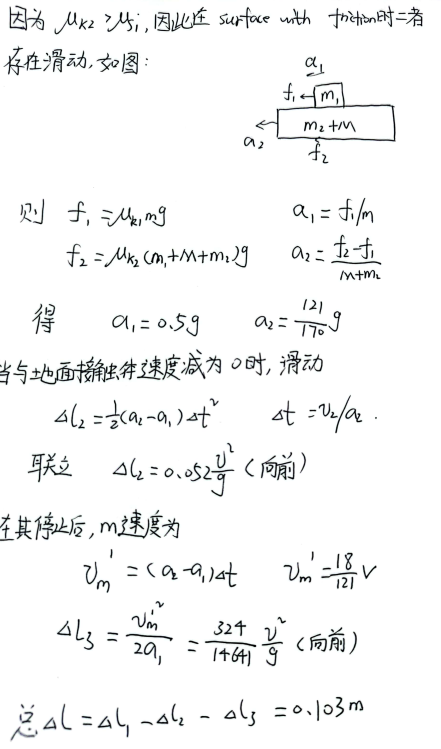 因为 μk2 > μs1, 因此在 surface with friction时二者
存在滑动, 如图:
a1
f1 ← m1
m2+M
a2
f2
则 f1 = μk1 mg a1 = f1/m
f2 = μk2 (m1+M+m2)g a2 = (f2-f1)/(M+m2)
得 a1 = 0.5g a2 = 121/170 g
当与地面接触体速度减为0时, 滑动
ΔL2 = 1/2 (a2-a1)Δt² Δt = v2/a2 .
联立 ΔL2 = 0.052 v²/g (向前)
在其停止后, m速度为
vm' = (a2-a1)Δt vm' = 18/121 v
ΔL3 = vm'²/2a1 = 324/14641 v²/g (向前)
总ΔL = ΔL1 - ΔL2 - ΔL3 = 0.103m